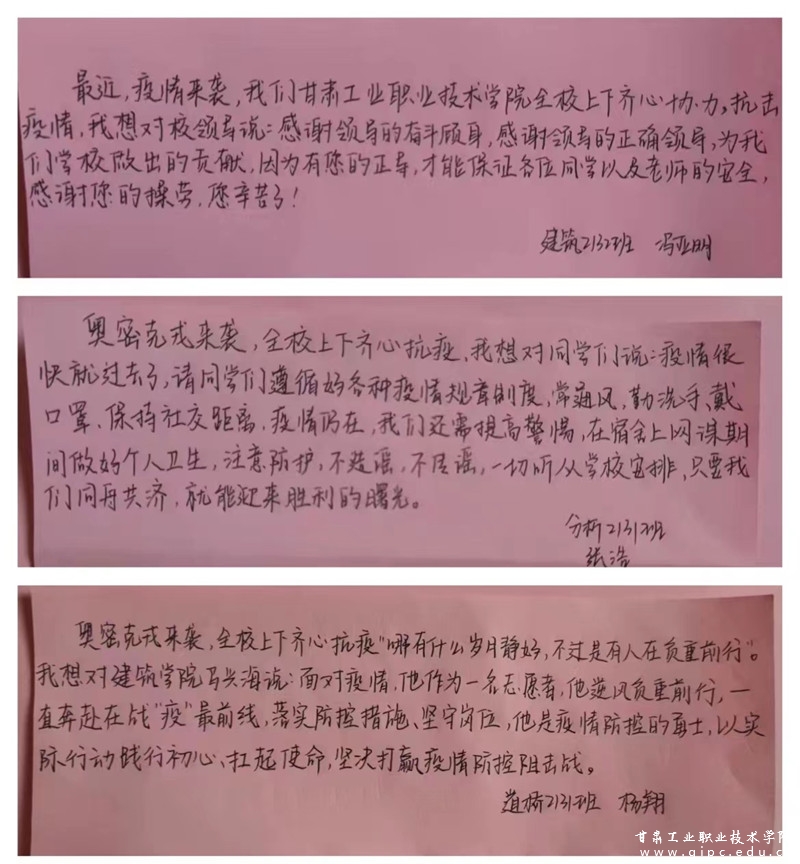 最近,疫情来袭,我们甘肃工业职业技术学院全校上下齐心协力,抗击
疫情,我想对校领导说:感谢领导的奋斗顾身,感谢领导的正确领导,为我
们学校做出的贡献,因为有您的正导,才能保证各位同学以及老师的安全,
感谢您的操劳,您辛苦了!
建筑2132班 冯亚明
奥密克戎来袭,全校上下齐心抗疫,我想对同学们说:疫情很
快就过去了,请同学们遵循好各种疫情规章制度,常通风,勤洗手、戴
口罩、保持社交距离,疫情仍在,我们还需提高警惕,在宿舍上网课期
间做好个人卫生,注意防护,不造谣,不传谣,一切听从学校安排,只要我
们同舟共济,就能迎来胜利的曙光。
分析2131班
张浩
奥密克戎来袭,全校上下齐心抗疫"哪有什么岁月静好,不过是有人在负重前行"。
我想对建筑学院马兴海说:面对疫情,他作为一名志愿者,他逆风负重前行,一
直奔赴在战"疫"最前线,落实防控措施、坚守岗位,他是疫情防控的勇士,以实
际行动践行初心、扛起使命,坚决打赢疫情防控阻击战。
道桥2131班 杨翔
甘肃工业职业技术学院
www.gipc.edu.c